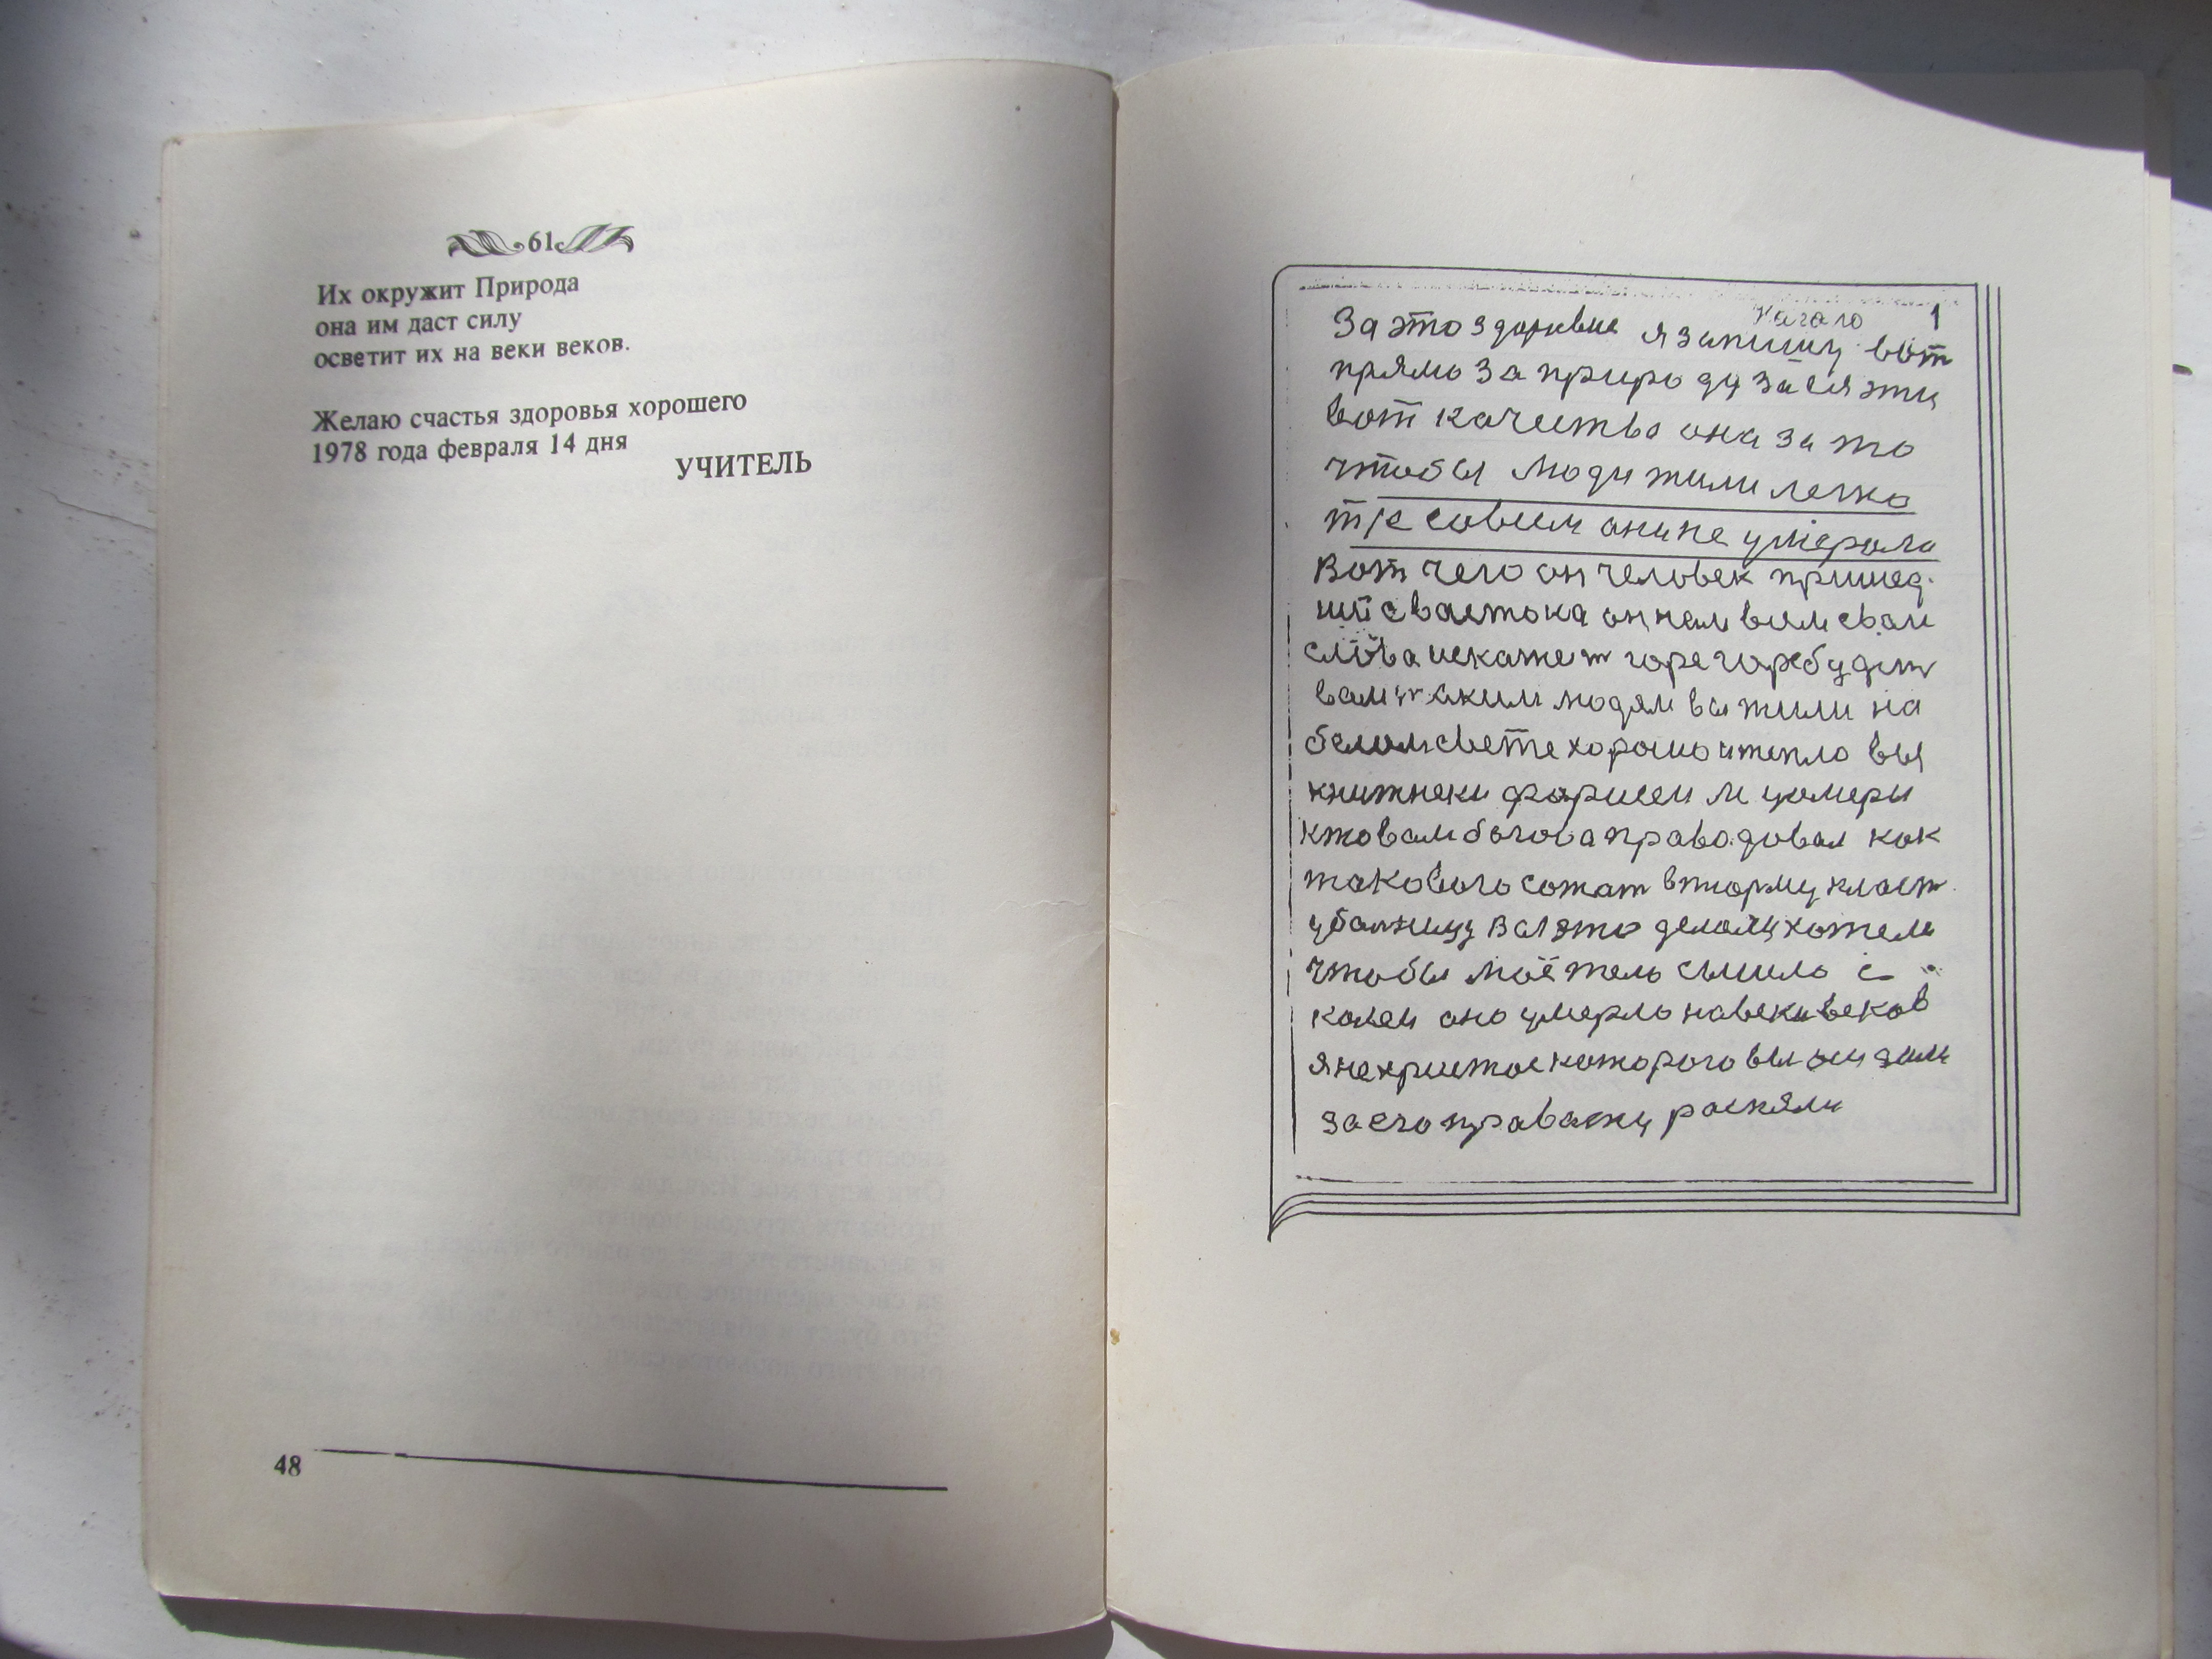 61
Их окружит Природа
она им даст силу
осветит их на веки веков.
Желаю счастья здоровья хорошего
1978 года февраля 14 дня
УЧИТЕЛЬ
48
Начало 1
За это здоровие я запишу вот
прямо за природу за ея эти
вот качества она за то
чтобы люди жили легко
совсем они не умерали
Вот чего он человек пришед-
ший с востока он нам всем сваи
слова искажет горе горе будет
вам таким людям вы жили на
белом свете хорошо и тепло вы
книжнеки фарисеи лицомеры
кто вам бо гова право довал как
таковога сожат в тюрму класт
у болницу вы это делали хотели
чтобы моё тело с
оно умерло на веки веков
я не христос которого вы
за его правату распяли